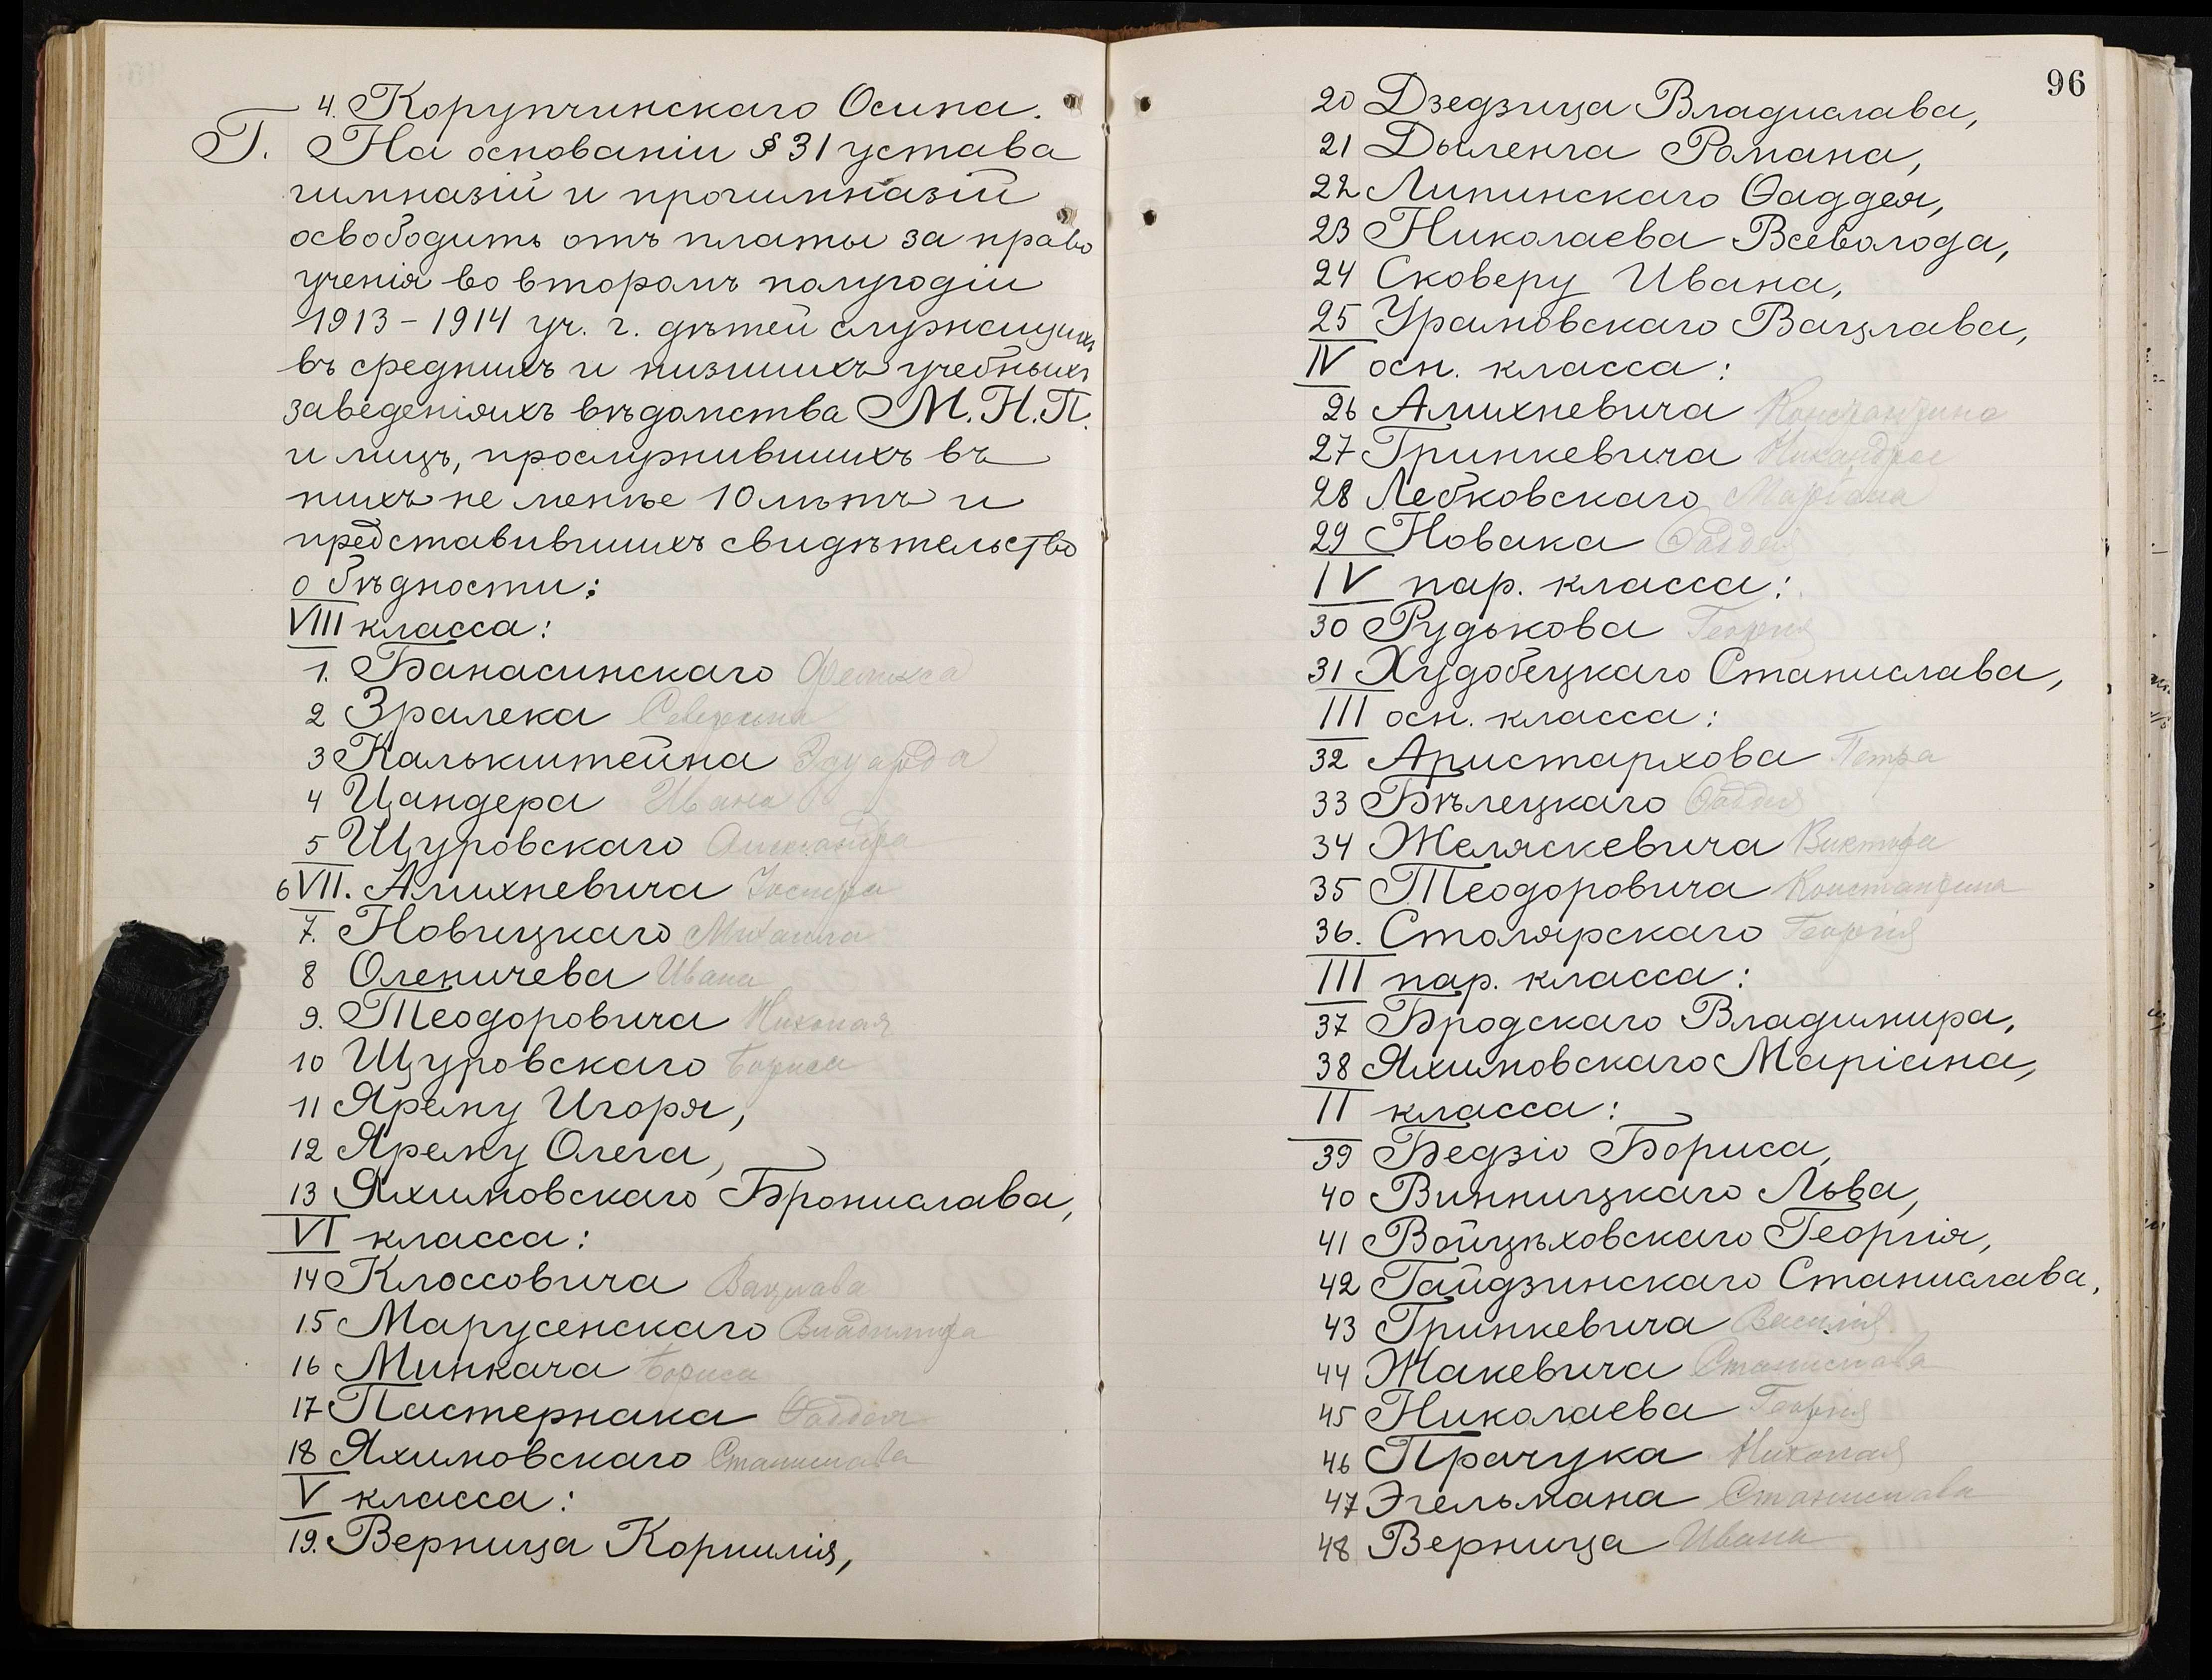 4. Корупчинскаго Осипа.
Г. На основаніи § 31 устава
гимназій и прогимназій
освободить отъ платы за право
ученія во второмъ полугодіи
1913-1914 уч. г. дѣтей служащихъ
въ среднихъ и низшихъ учебныхъ
заведеніяхъ вѣдомства М.Н.П.
и лицъ, прослужившихъ въ
нихъ не менѣе 10 лѣтъ и
представившихъ свидѣтельство
о бѣдности:
VIII класса:
1. Банасинскаго Феликса
2 Зралека Северина
3 Калькштейна Эдуарда
4 Цандера Ивана
5 Щуровскаго Александра
6 VII. Алихневича Іосифа
7. Новицкаго Михаила
8 Оленичева Ивана
9. Теодоровича Николая
10 Щуровскаго Бориса
11 Ярему Игоря,
12 Ярему Олега,
13 Яхимовскаго Бронислава,
VI класса:
14 Клоссовича Вацлава
15 Марусенскаго Владимира
16 Минкача Бориса
17 Пастернака Фаддея
18 Яхимовскаго Станислава
V класса:
19. Верница Корнилія,
96
20 Дзедзица Владислава,
21 Дыленга Романа,
22 Липинскаго Ѳаддея,
23 Николаева Всеволода,
24 Сковеру Ивана,
25 Урамовскаго Вацлава,
IV осн. класса:
26 Алихневича Константина
27 Гринкевича Никандра
28 Лебковскаго Маріана
29 Новака Ѳаддея
IV пар. класса:
30 Рудькова Георгія
31 Худобецкаго Станислава,
III осн. класса:
32 Аристархова Петра
33 Бѣлецкаго Ѳаддея
34 Желяскевича Виктора
35 Теодоровича Константина
36. Столярскаго Георгія
III пар. класса:
37 Бродскаго Владимира,
38 Яхимовскаго Маріана,
II класса:
39 Бедзіо Бориса,
40 Винницкаго Льва,
41 Войцѣховскаго Георгія,
42 Гайдзинскаго Станислава,
43 Гринкевича Василія
44 Жакевича Станислава
45 Николаева Георгія
46 Прачука Николая
47 Эгельмана Станислава
48 Верница Ивана